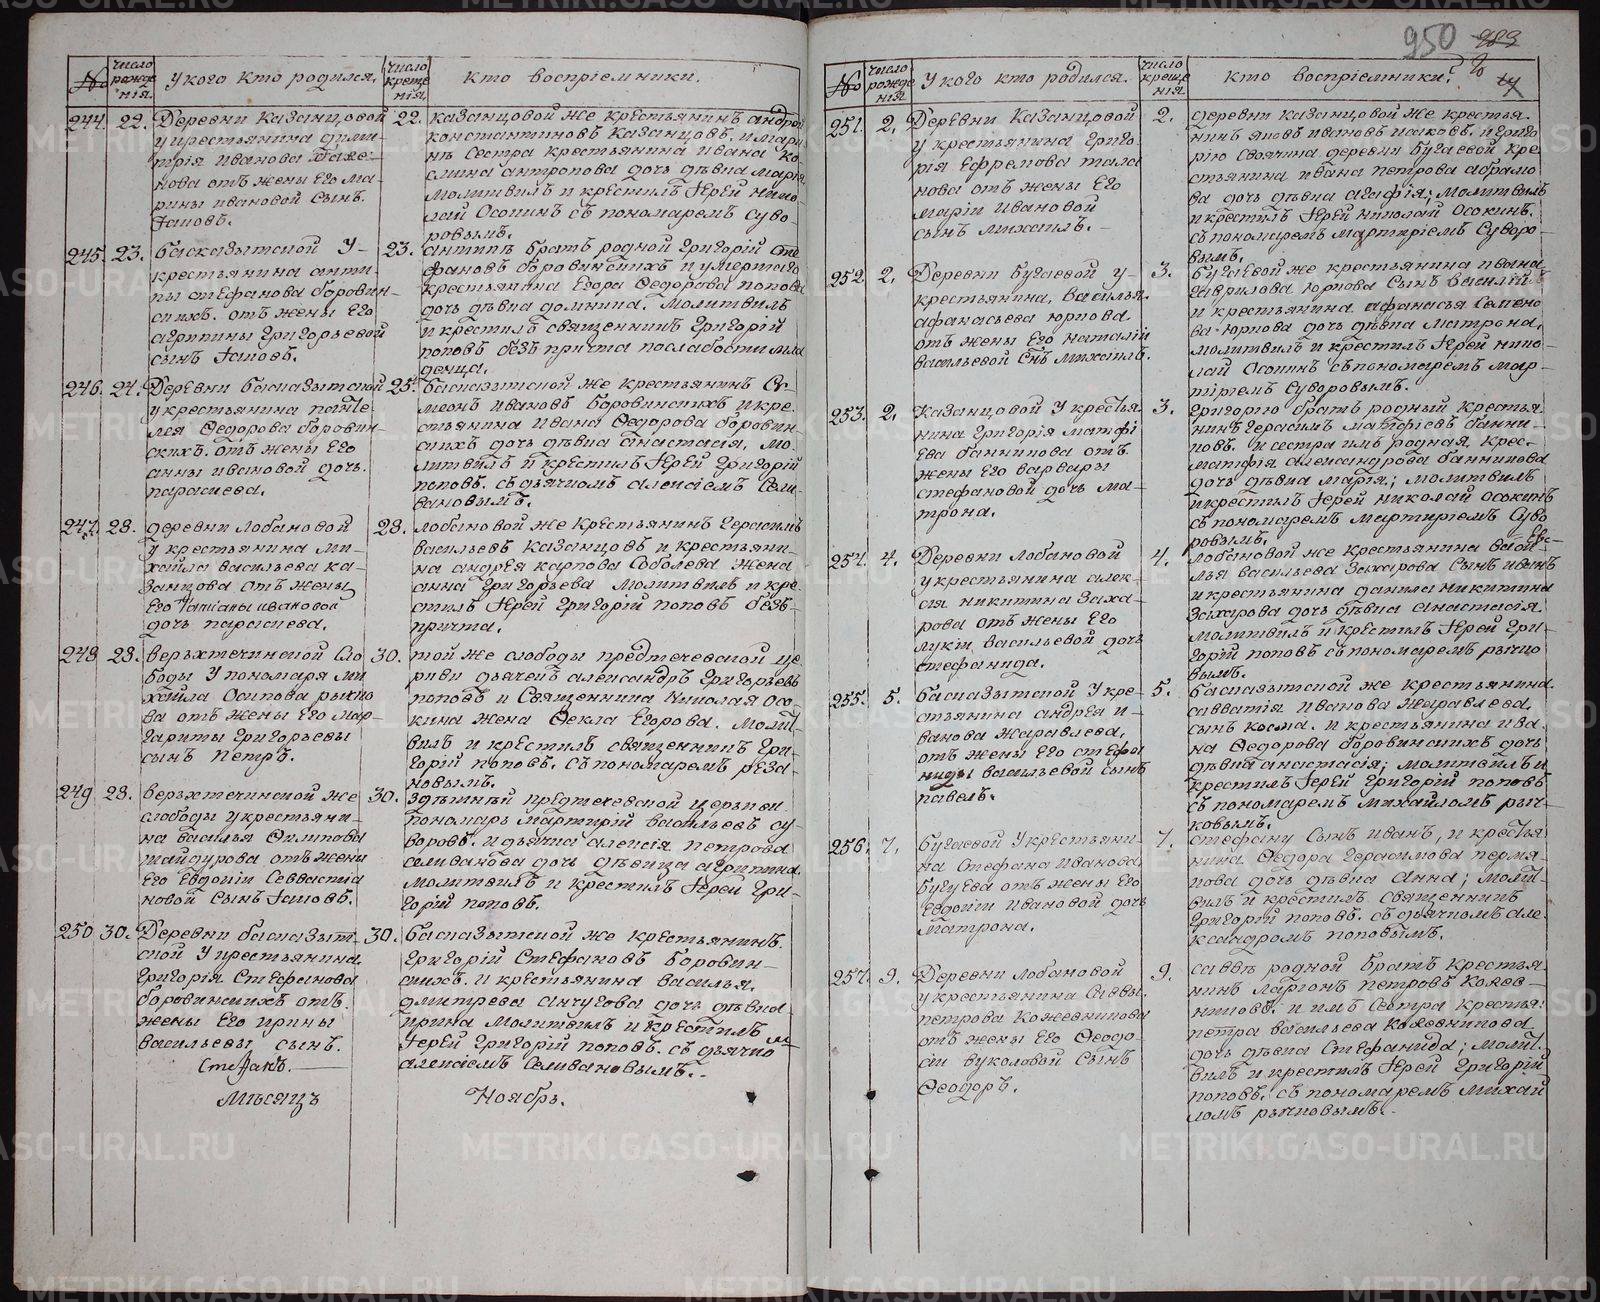 950 989
№
число рожде нія
у кого кто родился.
число креще нія
кто воспріемники.
244. 22. Деревни Казанцовой
у крестьянина дими
трія иванова
нова отъ жены Его ма
рины ивановой сынъ
Іаковъ.
22. казанцовой же крестьянинъ андрей
константиновъ Казанцовъ, и мари
нѣ сестра крестьянина ивана ко
антропова дочь дѣвка марія
молитвилъ и крестилъ Іерей нико
лай Осокинъ съ пономаремъ суво
ровымъ.
245. 23. басказытской У
крестьянина анти
пы стефанова боровин
скихъ. отъ жены его
агрипины григорьевой
сынъ Іаковъ.
23. антипѣ братъ родной григорій сте
фановъ боровинскихъ и умершаго
крестьянина Егора Ѳедорова попова
дочь дѣвка домнина. молитвилъ
и крестилъ священникъ григорій
поповъ безъ причта послабости мла
денца.
246. 24. Деревни басказытской
у крестьянина панте
лея Ѳедорова боровин
скихъ. отъ жены его
анны ивановой дочь
параскева.
25. басказытской же крестьянинъ Си
меонъ ивановъ боровинскихъ и кре
стьянина ивана Ѳедорова боровин
скихъ дочь дѣвка анастасія, мо
литвилъ и крестилъ Іерей григорій
поповъ. съ дьячкомъ алексіемъ Сели
вановымъ.
247. 28. деревни лобановой
у крестьянина ми
хайла васильева ка
занцова отъ жены
его татіаны ивановой
дочь параскева.
28. лобановой же крестьянинъ герасимъ
васильевъ казанцовъ и крестьяни
на андрея карпова соболева жена
анна григорьева молитвилъ и кре
стилъ Іерей григорій поповъ безъ
причта.
248 28. верьхтечинской Сло
боды у пономаря ми
хайла Осипова рычко
ва отъ жены его мар
гариты григорьевы
сынъ петръ.
30. той же слободы предтечевской це
ркви дьячекъ александръ григорьевъ
поповъ и священника николая осо
кина жена Ѳекла Егорова. молит
вилъ и крестилъ священникъ гри
горій поповъ. съ пономаремъ реза
новымъ.
249 28. верьхтечинской же
слободы у крестьяни
на василья Филипова
шайдурова отъ жены
его Евдокіи Севастья
новой сынъ Іаковъ.
30. здѣшный предтечевской церькви
пономарь мартирій васильевъ су
воровъ. и дьячка алексія петрова
селиванова дочь дѣвица агрипина.
молитвилъ и крестилъ Іерей гри
горій поповъ.
250 30. Деревни басказыт
ской у крестьянина
григорія Стефанова
боровинскихъ отъ
жены его ирины
васильевы сынъ
Стефанъ.
30. басказытской же крестьянинъ
григорій Стефановъ боровин
скихъ. и крестьянина василья
дмитрева анчугова дочь дѣвка
ирина молитвилъ и крестилъ
Іерей григорій поповъ. съ дьячкомъ
алексіемъ Селивановымъ.
Мѣсяцъ Ноябрь.
№
число рожде нія
у кого кто родился.
число креще нія
кто воспріемники.
251. 2. Деревни Казанцовой
у крестьянина григо
рія Ефремова тала
нова отъ жены его
маріи ивановой
сынъ михаилъ.
2. деревни казанцовой же крестья
нинъ яковъ ивановъ исаковъ. и григо
рію своячина деревни бугаевой кре
стьянина ивана петрова абрамо
ва дочь дѣвка агафія; молитвилъ
и крестилъ Іерей николай осокинъ.
съ пономаремъ мартиріемъ суворо
вымъ.
252. 2. Деревни бугаевой у
крестьянина, василья
афанасьева юркова
отъ жены его наталіи
васильевой снъ михаилъ.
3. бугаевой же крестьянина ивана
гаврилова юркова сынъ василій
и крестьянина афанасья семено
ва юркова дочь дѣвка матрона.
молитвилъ и крестилъ Іерей нико
лай осокинъ съ пономаремъ мар
тиріемъ Суворовымъ.
253. 2. Казанцовой у крестья
нина григорія матфі
ева банникова отъ
жены его варвары
стефановой дочь ма
трона.
3. григорію братъ родный крестья
нинъ герасимъ матфіевъ банни
ковъ. и сестра имъ родная крес.
матфія александрова банникова
дочь дѣвка марія; молитвилъ
и крестилъ Іерей николай осокинъ
съ пономаремъ мартиріемъ суво
ровымъ.
254. 4. Деревни лобановой
у крестьянина алек
сія никитина заха
рова отъ жены его
лукіи васильевой дочь
стефанида.
4. лобановой же крестьянина васи
лья васильева захарова сынъ иванъ
и крестьянина данила никитина
захарова дочь дѣвка анастасія.
молитвилъ и крестилъ Іерей гри
горій поповъ съ пономаремъ рычко
вымъ.
255. 5. басказытской у кре
стьянина андрея и
ванова жаравлева,
отъ жены его стефа
ниды васильевой сынъ
павелъ.
5. басказытской же крестьянина
савватія иванова жаравлева,
сынъ косма. и крестьянина ива
на Ѳедорова боровинскихъ дочь
дѣвка анастасія; молитвилъ и
крестилъ Іерей григорій поповъ
съ пономаремъ михайломъ рыч
ковымъ.
256. 7. бугаевой у крестьяни
на стефана иванова
бугуева отъ жены его
Евдокіи ивановой дочь
матрона.
7. стефану сынъ иванъ, и крестья
нина Ѳедора герасимова пермя
кова дочь дѣвка анна; молит
вилъ и крестилъ священникъ
григорій поповъ. съ дьячкомъ але
ксандромъ поповымъ.
257. 9. Деревни лобановой
у крестьянина саввы
петрова кожевникова
отъ жены его Ѳеодо
сіи вуколовой сынъ
Ѳеодоръ.
9. саввѣ родной братъ крестья
нинъ ларіонъ петровъ кожев
никовъ. и имъ сестра крестья:
петра васильева кожевникова
дочь дѣвка стефанида; молит
вилъ и крестилъ Іерей григорій
поповъ. съ пономаремъ михай
ломъ рычковымъ.
METRIKI.GASO-URAL.RU